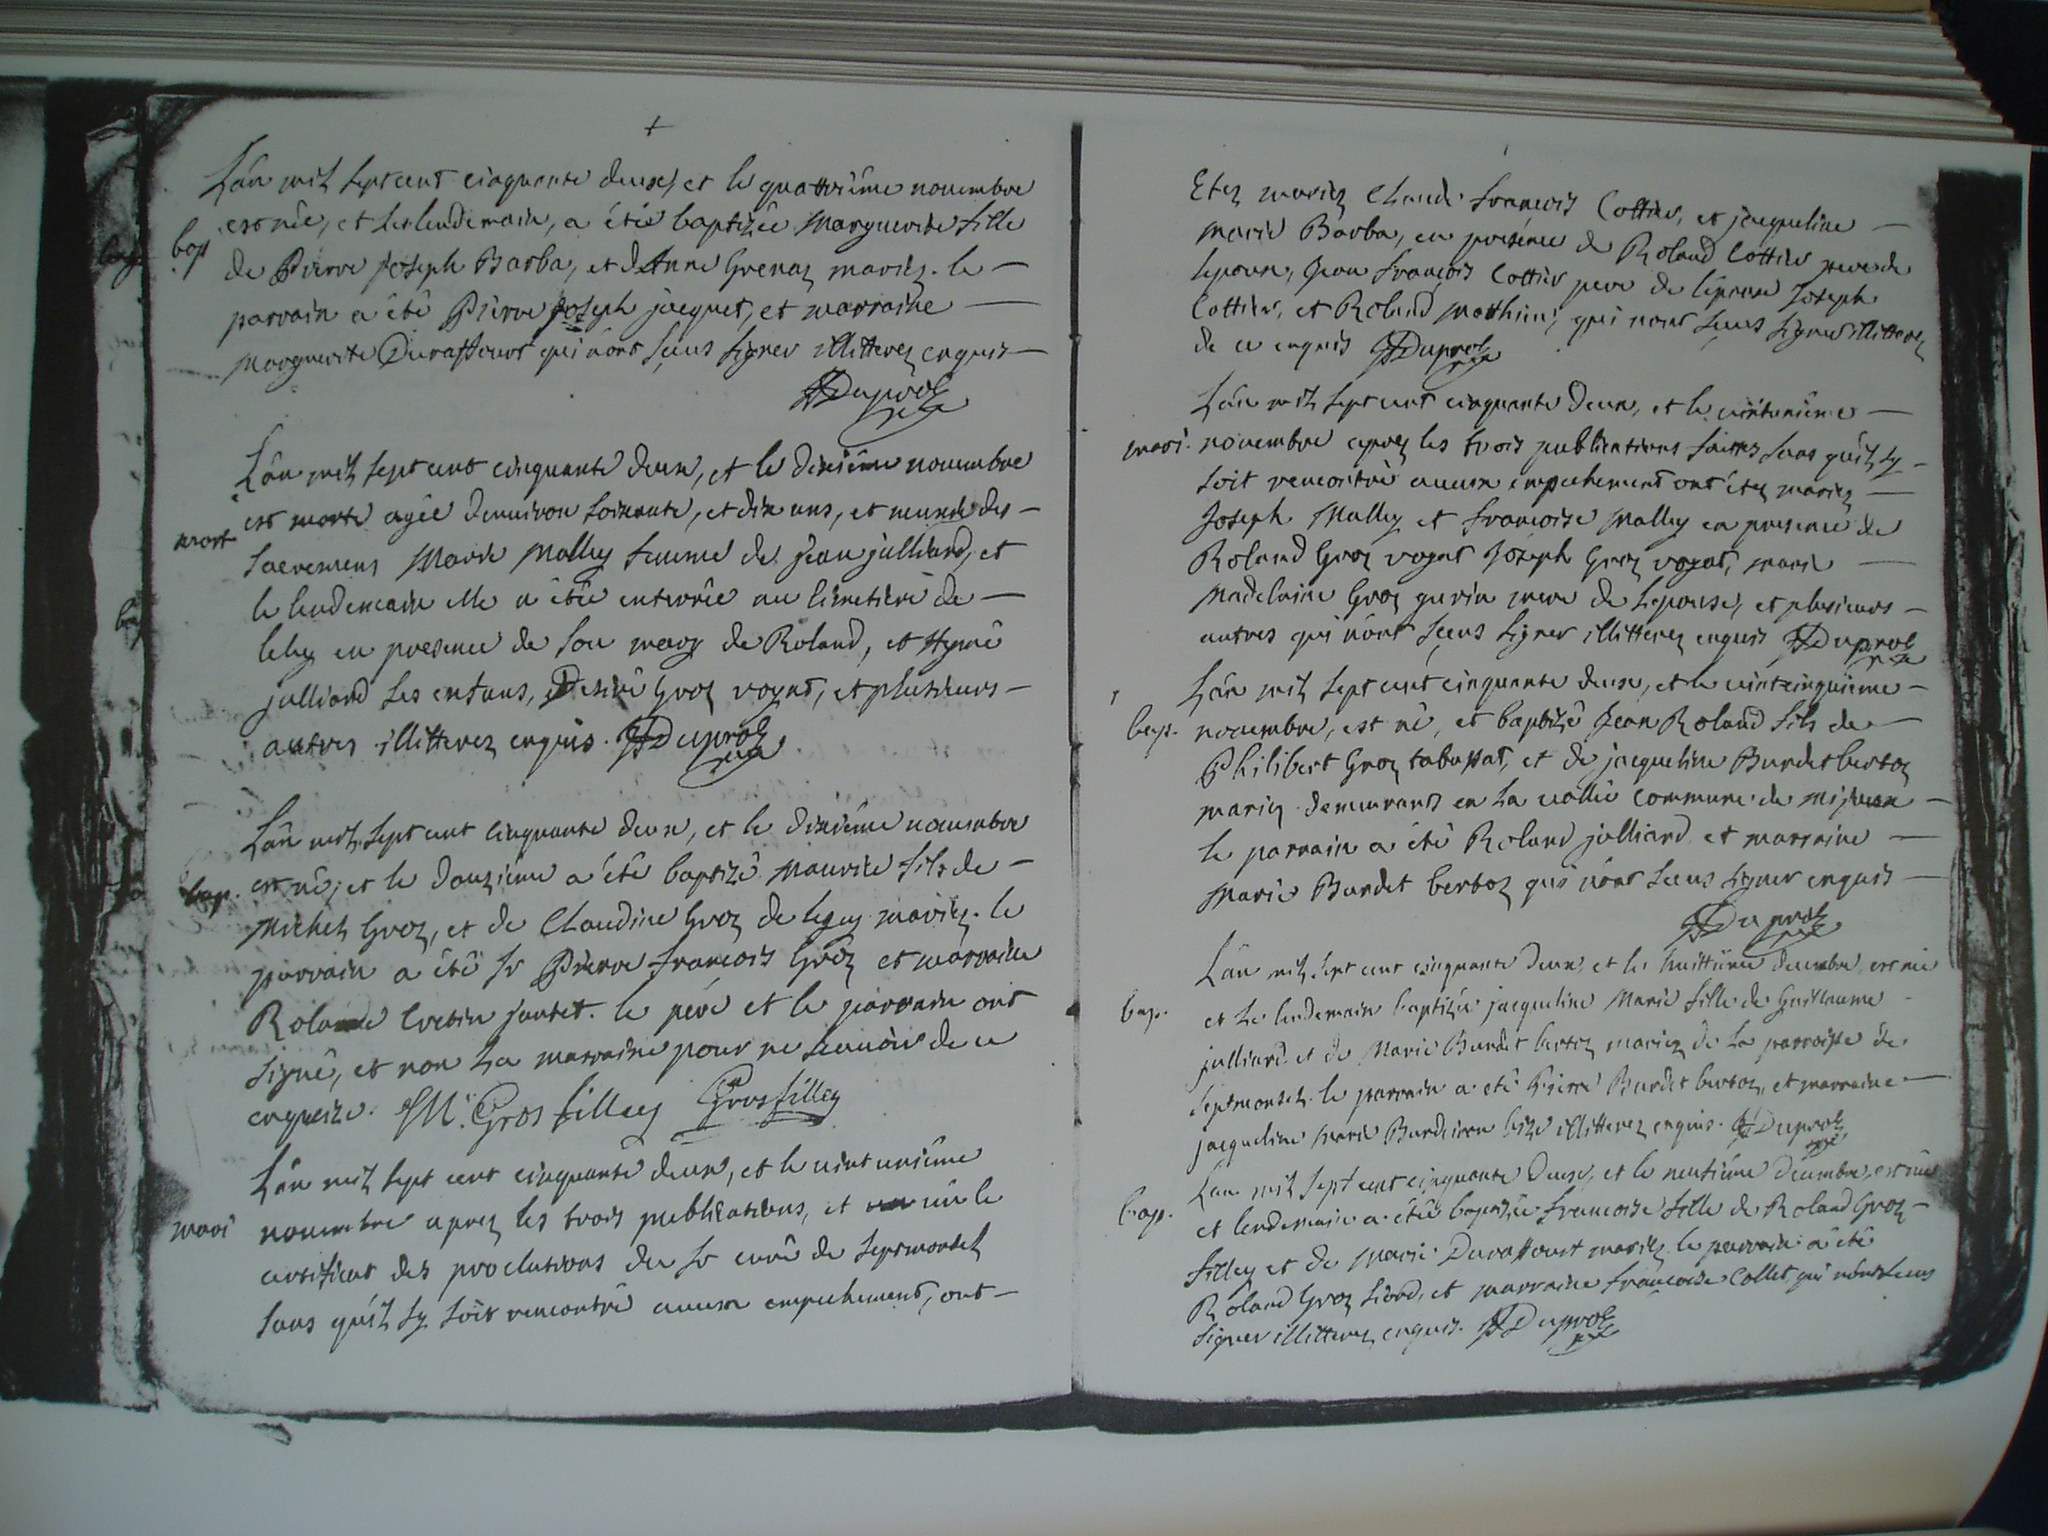 L'an mil sept cent cinquante deux, et le quattriême novembre
bap. est née, et le lendemain, a été baptizée Marguerite fille
de Pierre Joseph Barba, et d'Anne Grenaz mariez. le
parrain a été Pierre Joseph jacquet, et marraine
Marguerite Duraffourt qui n'ont sçeus signer illitterez enquis
Duproz
L'an mil sept cent cinquante deux, et le dixième novembre
mort est morte agée d'environ soixante, et dix ans, et munde des
sacremens Marie Malley femme de jean julliard, et
le lendemain elle a été enterrée au cimetiere de
lelex en presence de son mary de Roland, et
julliard ses enfans, Desiré Groz voyat, et plusieurs
autres illitterez enquis. Duproz
L'an mil sept cent cinquante deux, et le dixième novembre
bap. est né, et le douzième a été baptizé Maurice fils de
Michel Groz, et de Claudine Groz de mariez. le
parrain a été sr Pierre francois Groz et marraine
Rolande Cretin jantet. le père et le parrain ont
signé, et non La marraine pour ne scauoir de ce
enquise. M. Gros fillley Grosfilley
L'an mil sept cent cinquante deux, et le vint unième
mari novembre aprez les trois publications, et vû le
certificat des proclations du sr curé de septmontel
sans qu'il sy soit rencontré aucun empechement, ont
Etez mariez Claude francois Cottier, et jacqueline
Marie Barba, en presence de Roland Cottier pere de
lepoux, Jean françois Cottier pere de l'epouse Joseph
Cottier, et Roland Matthieu, qui n'ont sçeus signer illitterez
de ce enquis Duproz
L'an mil sept cent cinquante deux, et le vintunième
mari. novembre aprez les trois publications faittes sans qu'il sy
soit rencontré aucun empechement ont étez mariez
Joseph Malley et francoise Malley en presence de
Roland Groz voyat Joseph Groz voyat, Marie
Madelaine Groz gurin mere de Lepouse, et plusieurs
autres qui n'ont sçeus signer illitterez enquis Duproz
L'an mil sept cent cinquante deux, et le vintcinquième
bap. novembre, est né, et baptizé Jean Roland fils de
Philibert Groz tabussat, et de jacqueline Burdet bertoz
mariez demeurants en La vallée commune de Mijoux
le parrain a été Roland julliard et marraine
Marie Burdet bertoz qui n'ont sceus signer enquis
Duproz
L'an mil sept cent cinquante deux, et le huittième decembre, est née
bap. et Le lendemain baptizée jacqueline Marie fille de Guillaume
julliard et de Marie Burdet bertoz mariez de La parroisse de
septmontel. le parrain a eté Pierre Burdet bertoz, et marraine
jacqueline Marie illitterez enquis. Duproz
L'an mil sept cent cinquante deux, et le neufième decembre, est née
bap. et lendemain a étée baptizée francoise fille de Roland Groz
filley et de Marie Duraffourt mariez. le parrain a été
Roland Groz et marraine francoise Collet, qui n'ont sceus
signer illitterez enquis. Duproz